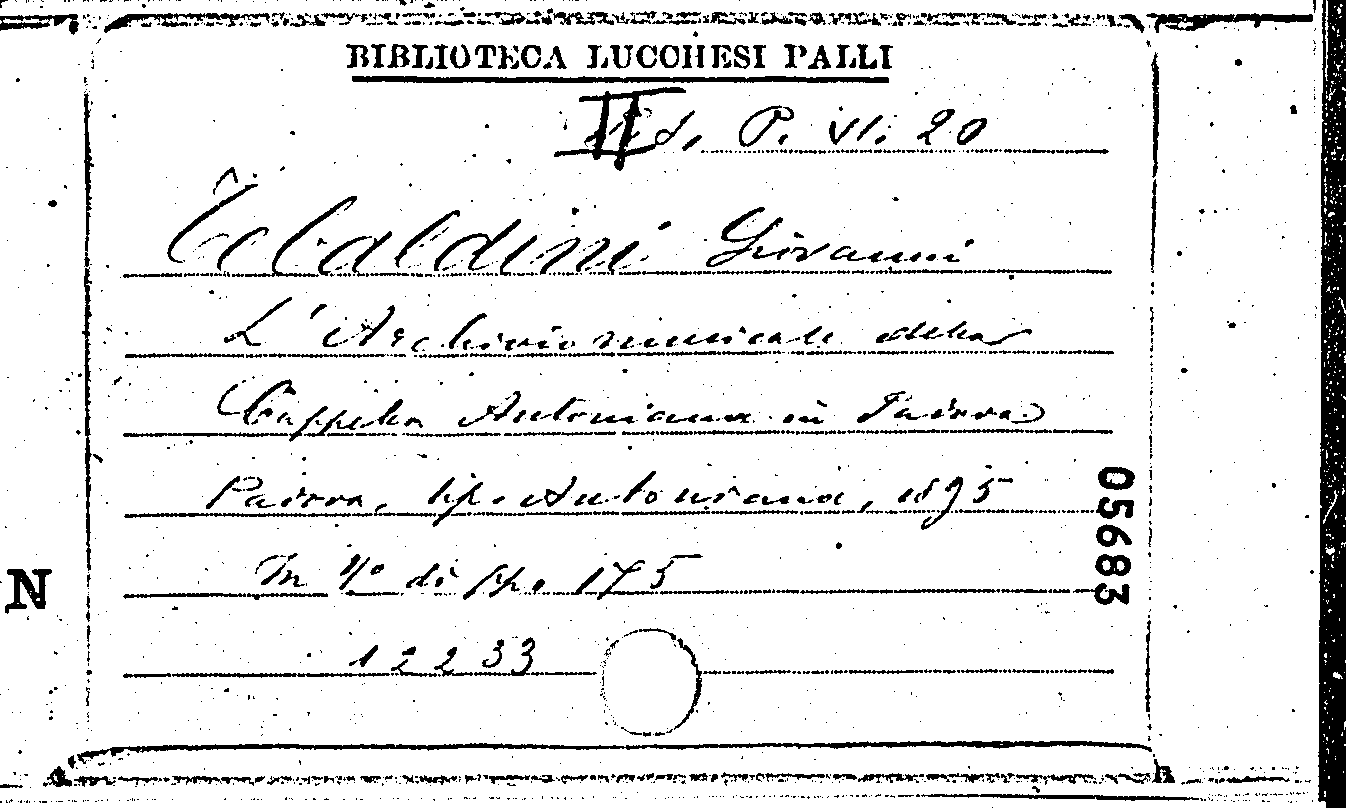 BIBLIOTECA LUCCHESI PALLI
II P. VI. 20
Tebaldini Giovanni
L'Archivio musicale della
Cappella Antoniana in Padova
Padova, tip. Antoniana, 1895
In 4º di pp. 175
12233
05683
N